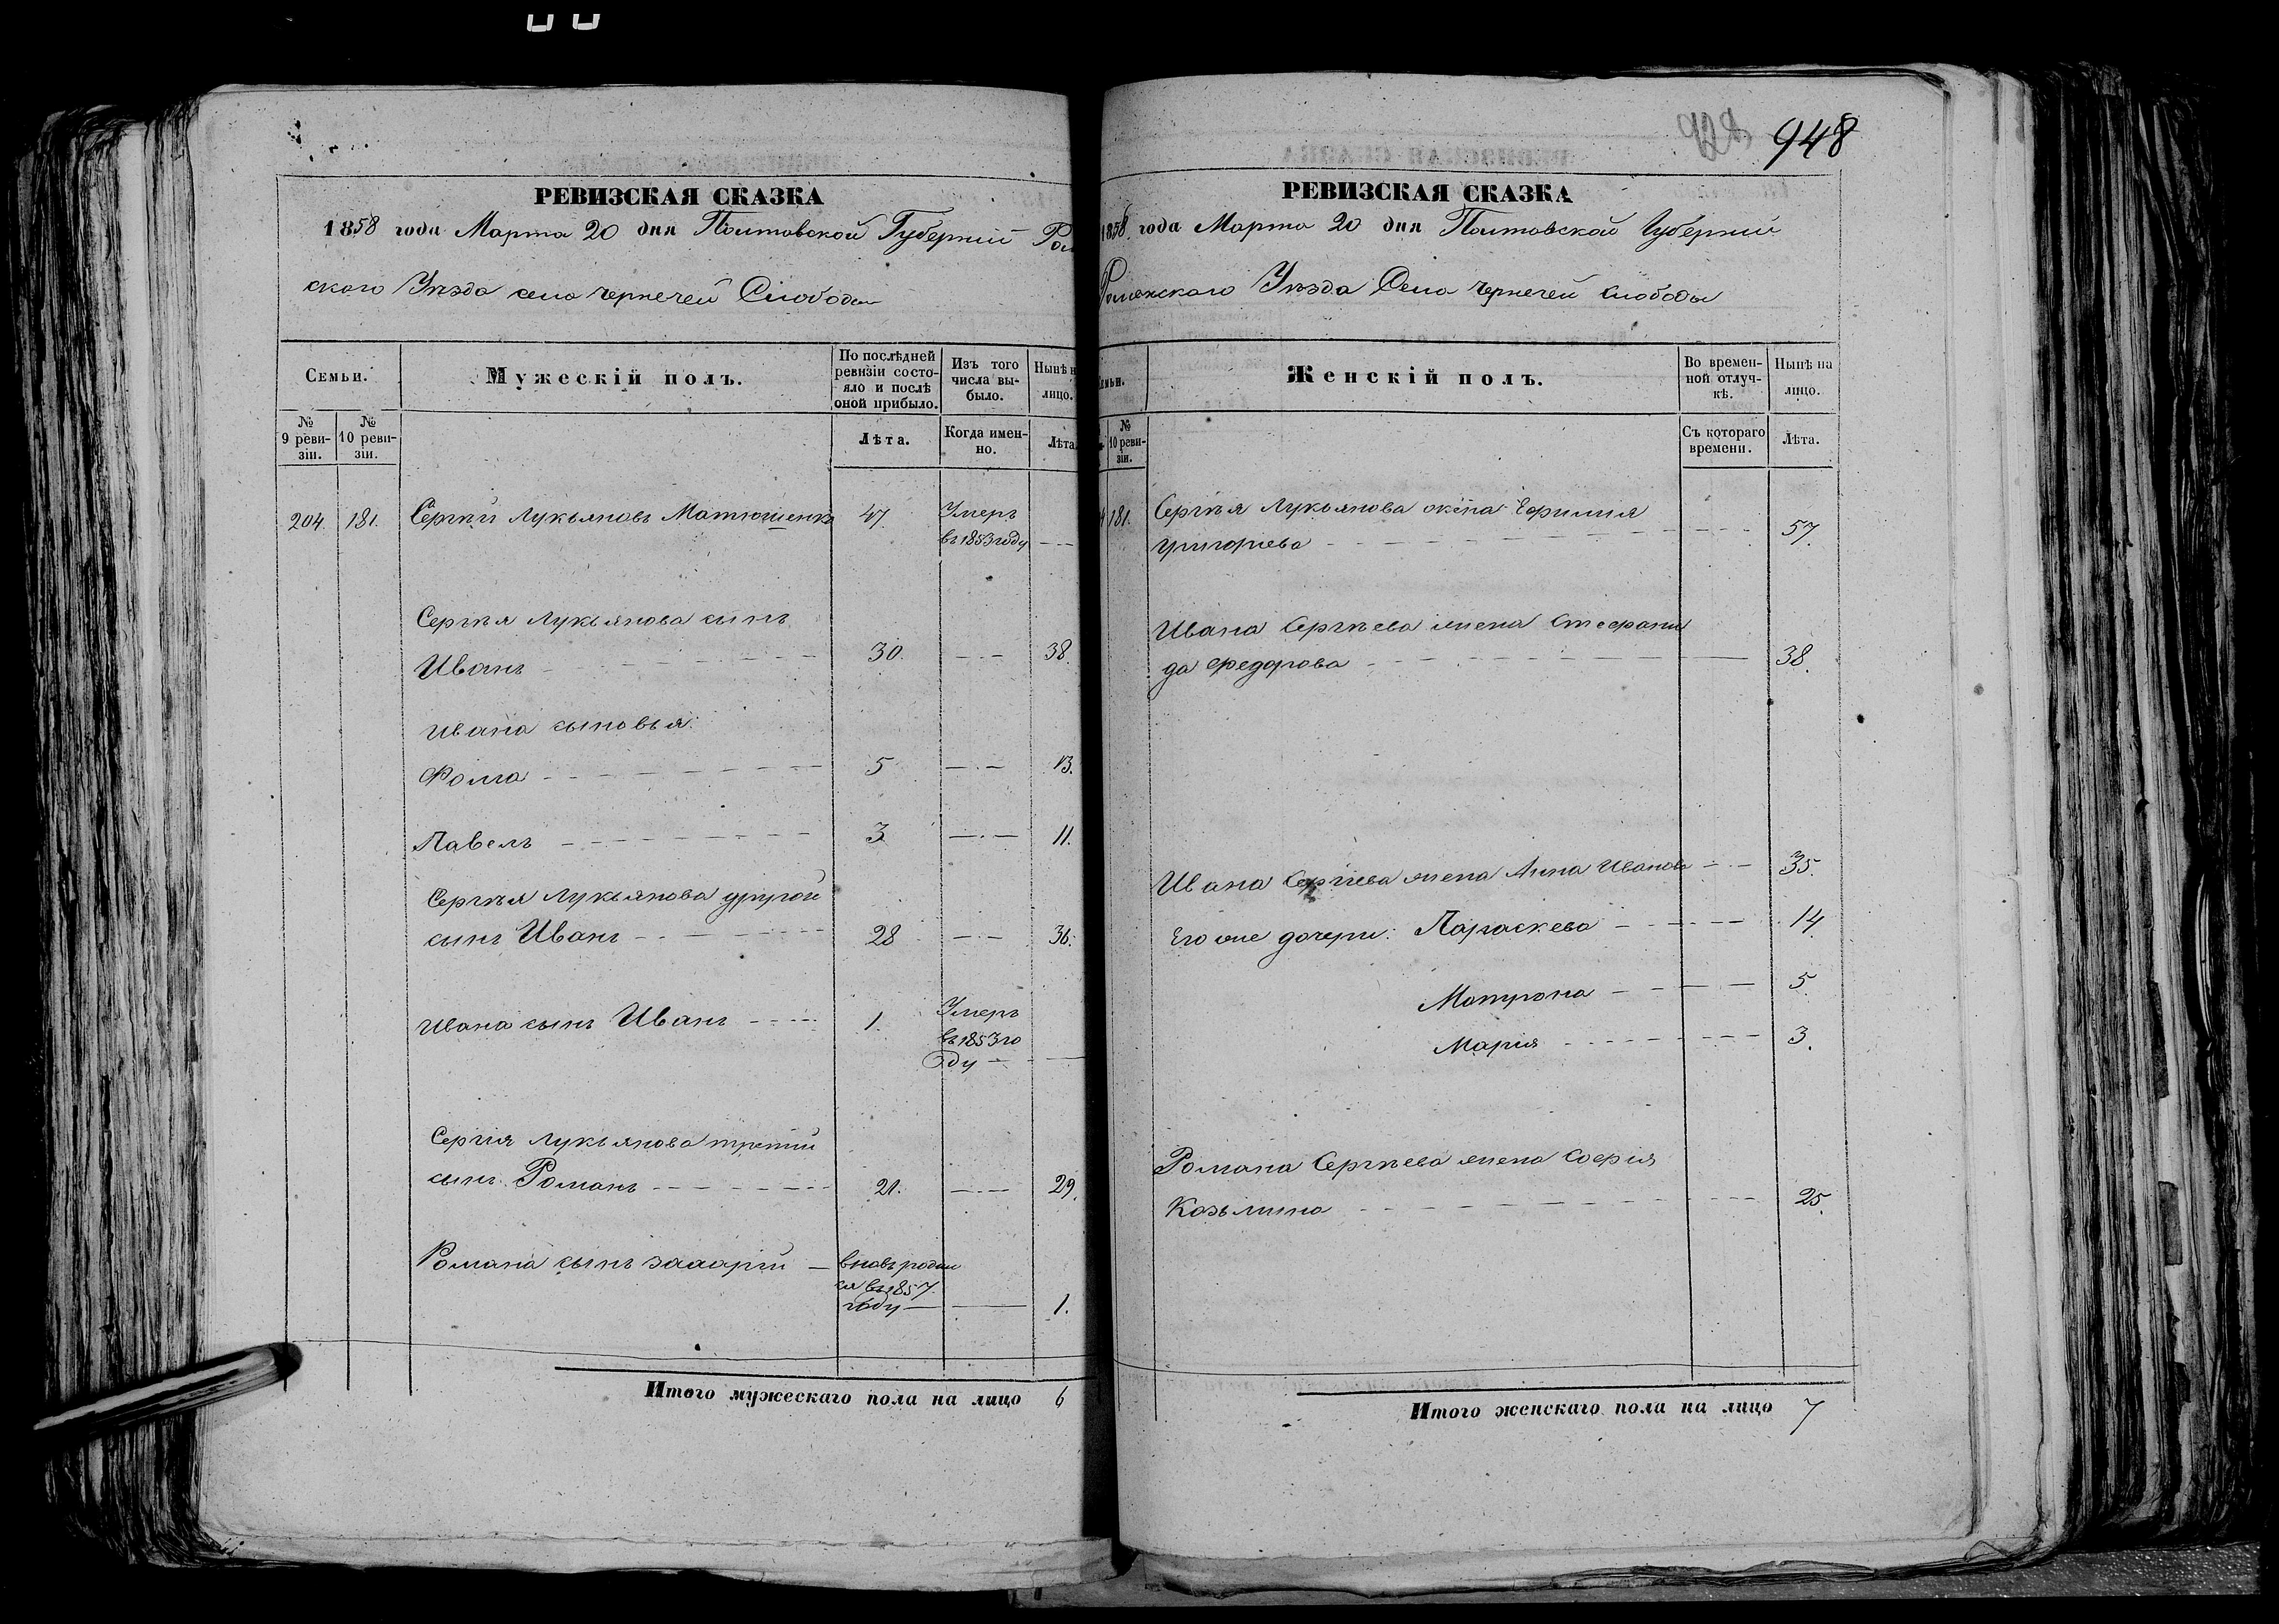 РЕВИЗСКАЯ СКАЗКА
1858 года Марта 20 дня Полтавской Губерніи Ром
ского Уѣзда села Чернечей Слободы
Семьи.
Мужескій полъ.
По послѣдней ревизіи состояло и послѣ оной прибыло.
Изъ того числа выбыло.
Нынѣ н лицо.
№ 9 ревизіи.
№ 10 ревизіи.
Лѣта.
Когда именно.
Лѣта
204. 181. Сергѣй Лукьяновъ Матюшенко 47 Умеръ
въ 1853 году
Сергѣя Лукьянова сынъ
Иванъ 30. 38.
Ивана сыновья:
Фома 5 13.
Павелъ 3 11.
Сергѣя Лукьянова другой
сынъ Иванъ 28 36.
Ивана сынъ Иванъ 1. Умеръ
въ 1853 го
ду
Сергія Лукьянова третій
сынъ Романъ 21. 29.
Романа сынъ Захарій вновь родил
ся въ 1857
году 1.
Итого мужескаго пола на лицо 6
948
РЕВИЗСКАЯ СКАЗКА
1858 года Марта 20 дня Полтавской Губерніи
Роменского Уѣзда Села Чернечей Слободы
емьи.
Женскій полъ.
Во временной отлучкѣ.
Нынѣ на лицо.
№ 10 ревизіи.
Съ котораго времени.
Лѣта.
181. Сергѣя Лукьянова жена Ефимия
Григорьева 57.
Ивана Сергѣева жена Стефани
да Федорова 38.
Ивана Сергіева жена Анна Иванова 35.
Его же дочери: Параскева 14
Матрона 5
Марія 3.
Романа Сергѣева жена Софія
Козьмина 25.
Итого женскаго пола на лицо 7